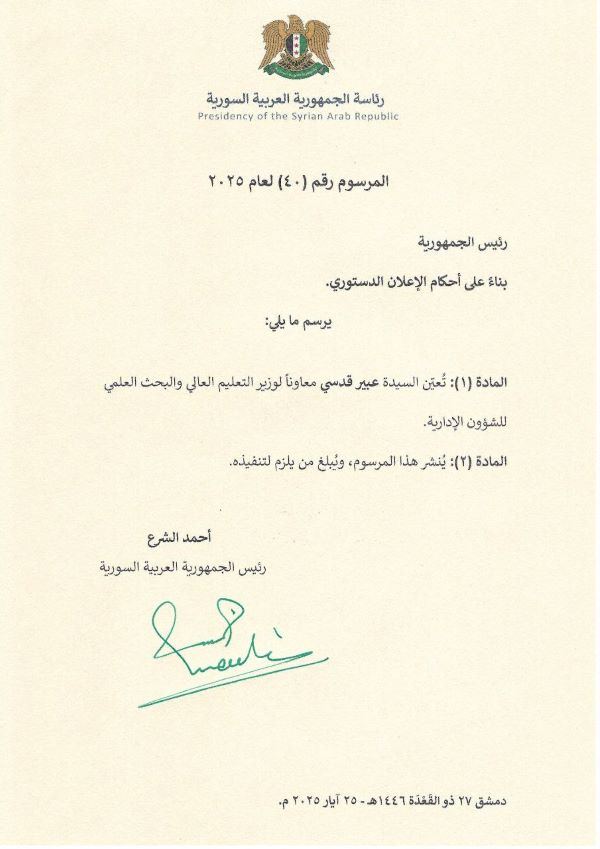 رئاسة الجمهورية العربية السورية
Presidency of the Syrian Arab Republic
المرسوم رقم (٤٠) لعام ٢٠٢٥
رئيس الجمهورية
بناءً على أحكام الإعلان الدستوري.
يرسم ما يلي:
المادة (١): تُعيّن السيدة عبير قدسي معاوناً لوزير التعليم العالي والبحث العلمي
للشؤون الإدارية.
المادة (٢): يُنشر هذا المرسوم، ويُبلغ من يلزم لتنفيذه.
أحمد الشرع
رئيس الجمهورية العربية السورية
دمشق ٢٧ ذو القَعْدَة ١٤٤٦هـ - ٢٥ آيار ٢٠٢٥ م.